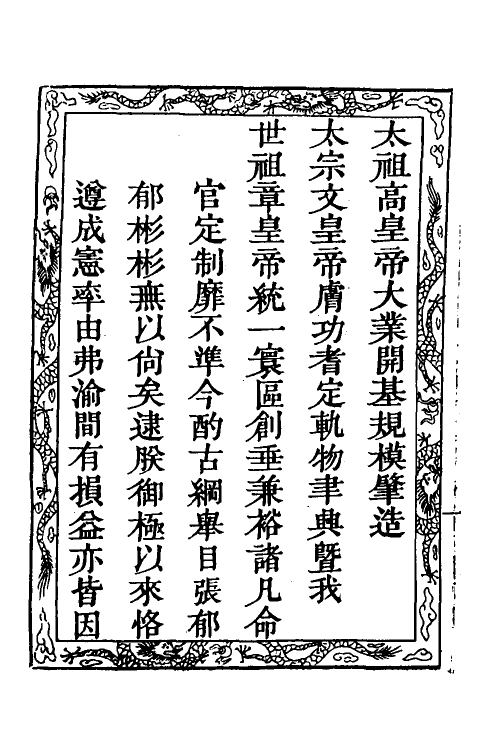 太祖高皇帝大業開基規模肇造
太宗文皇帝膚功耆定軌物聿興曁我
世祖章皇帝統一寰區創垂兼裕諸凡命
官定制靡不準今酌古綱舉目張郁
郁彬彬無以尙矣逮朕御極以來恪
遵成憲率由弗渝間有損益亦皆因